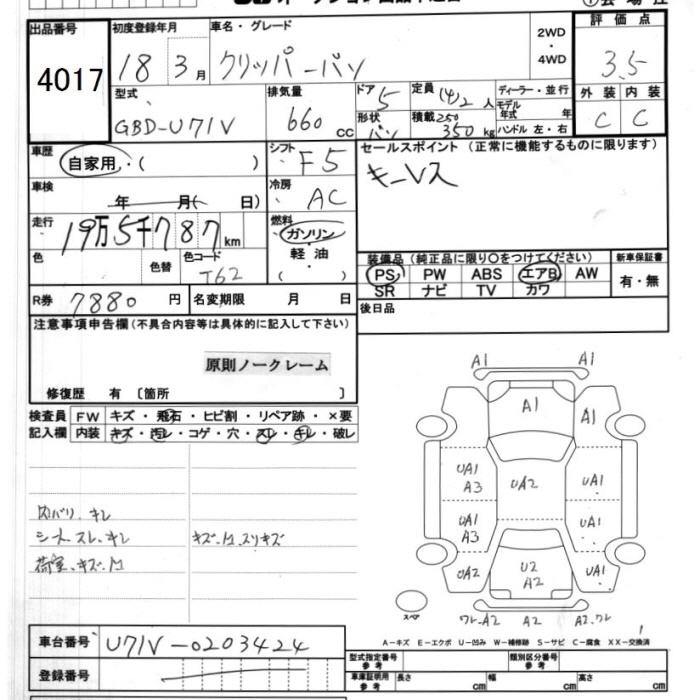 出品番号
4017
初度登録年月
18年3月
車名・グレード
クリッパーバン
2WD
・
4WD
評価点
3.5
外装 内装
C C
型式
GBD-U71V
排気量
660 cc
ドア 5
形状 バン
定員 (4)2 人
積載 250
350 kg
ディーラー・並行
モデル年式 年
ハンドル 左・右
車歴
自家用・( )
シフト F5
セールスポイント (正常に機能するものに限ります)
キーVス
車検
年 月( 日)
冷房 AC
走行
19万5千787km
燃料
ガソリン
・
軽油
( )
色 色替 色コード
T62
装備品 (純正品に限り○をつけてください)
PS PW ABS エアB AW
SR ナビ TV カワ
新車保証書
有・無
R券 7880 円 名変期限 月 日
後日品
注意事項申告欄(不具合内容等は具体的に記入して下さい)
原則ノークレーム
修復歴 有 〔箇所 〕
検査員 FW キズ・飛石・ヒビ割・リペア跡・×要
記入欄 内装 キズ・汚レ・コゲ・穴・スレ・キレ・破レ
内バリ、キレ
シート スレ、キレ キズ、凹 スリキズ
荷室、キズ、凹
A1 A1
A1 A1
UA1 UA1
A3
UA2
UA1 UA1
A3
UA2 U2 UA1
A2
スペア
ワレ、A2 A2 A2、ワレ
A-キズ E-エクボ U-凹み W-補修跡 S-サビ C-腐食 XX-交換済
車台番号 U71V-0203424
登録番号
型式指定番号 参考 類別区分番号 参考
車庫証明用 参考 長さ cm 幅 cm 高さ cm